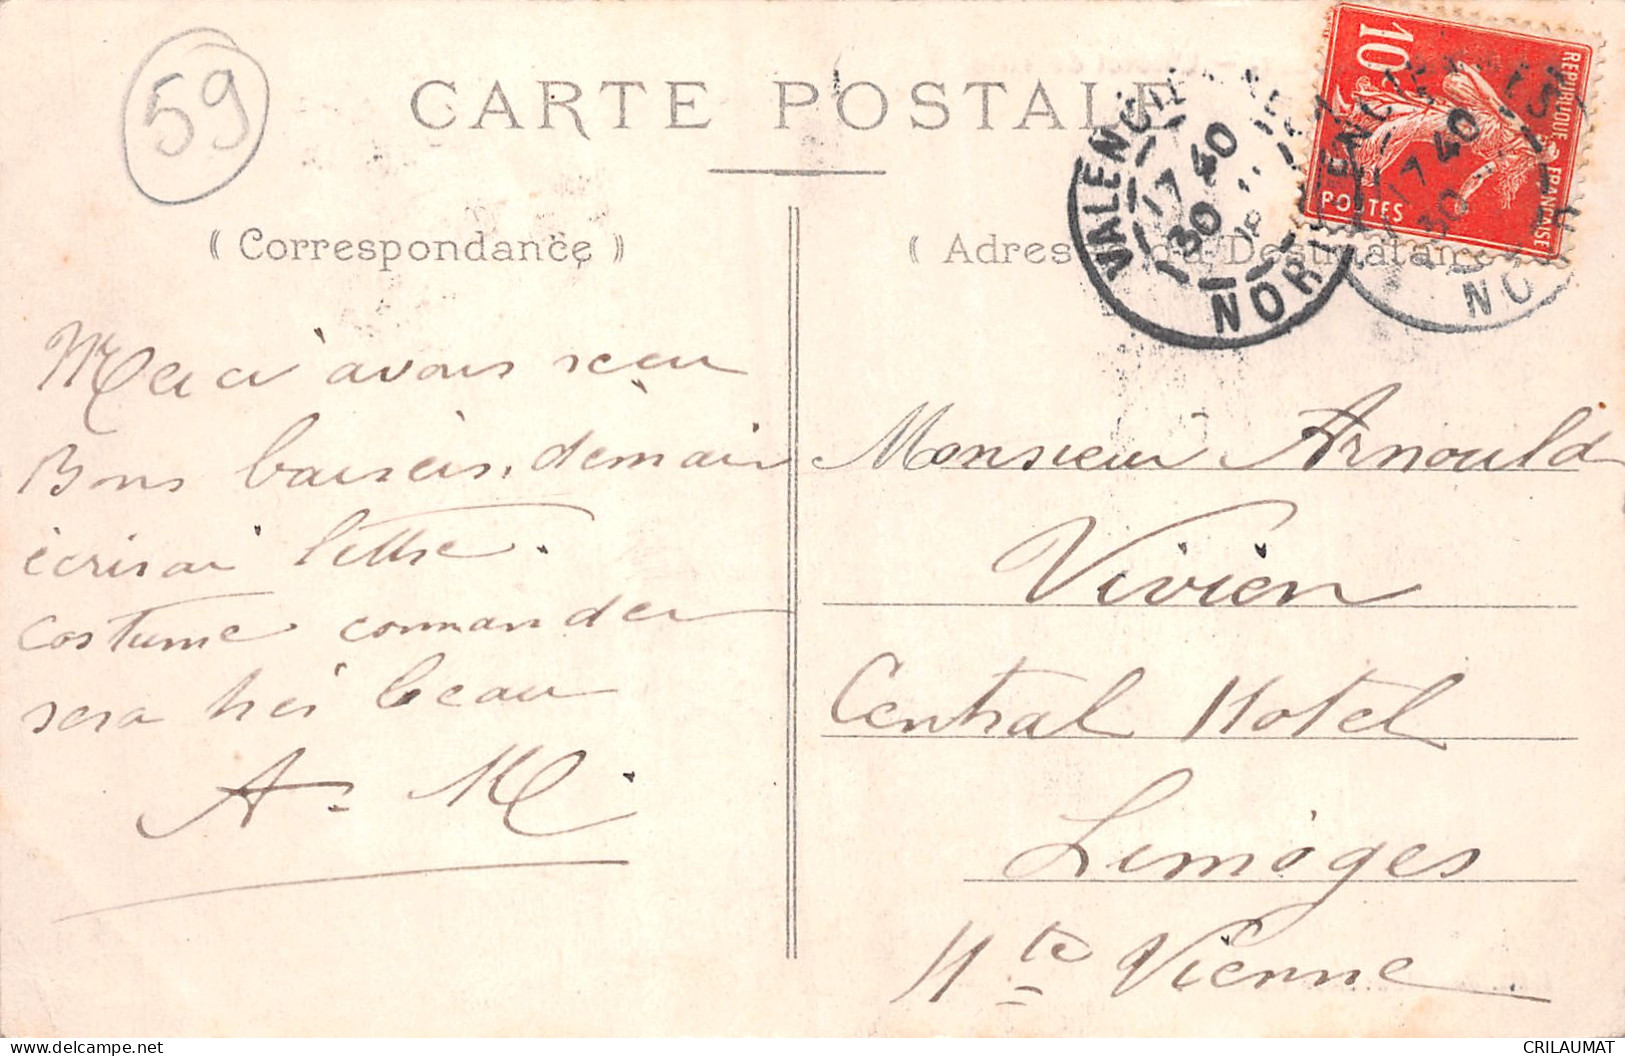 59
CARTE POSTALE
( Correspondance )
( Adresse du Destinataire )
VALENCIENNES
17 40
30
NORD
VALENCIENNES
17 40
30
NORD
10
REPUBLIQUE FRANÇAISE
POSTES
Merci avons reçu
Bons baisers, demain
écrirai lettre.
costume commander
sera très beau
A. M.
Monsieur Arnould
Vivien
Central Hotel
Limoges
Hte Vienne
CRILAUMAT